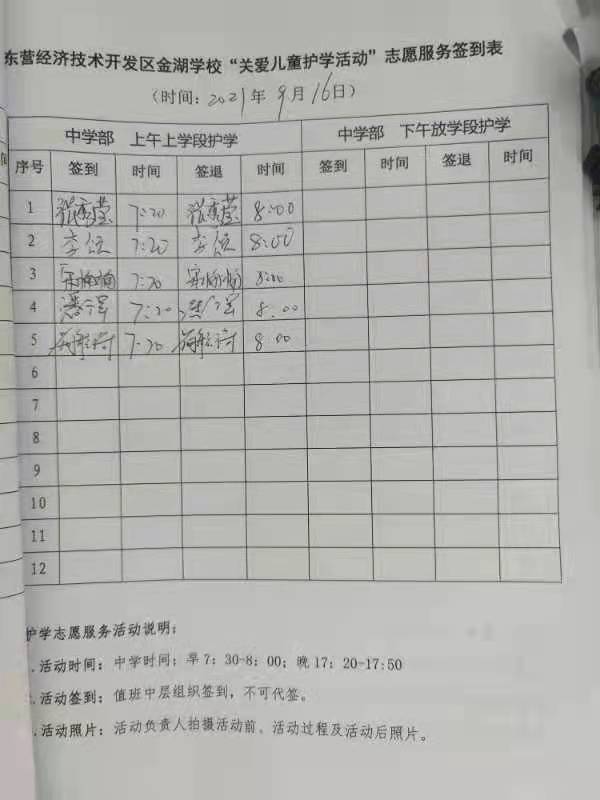 东营经济技术开发区金湖学校“关爱儿童护学活动”志愿服务签到表
(时间:2021年9月16日)
中学部 上午上学段护学 中学部 下午放学段护学
序号 签到 时间 签退 时间 签到 时间 签退 时间
1 张秀莹 7:20 张秀莹 8:00
2 7:20 8:00
3 7:20 8:00
4 7:20 8:00
5 7:20 8:00
6
7
8
9
10
11
12
护学志愿服务活动说明:
.活动时间:中学时间:早7:30-8:00;晚17:20-17:50
.活动签到:值班中层组织签到,不可代签。
.活动照片:活动负责人拍摄活动前、活动过程及活动后照片。